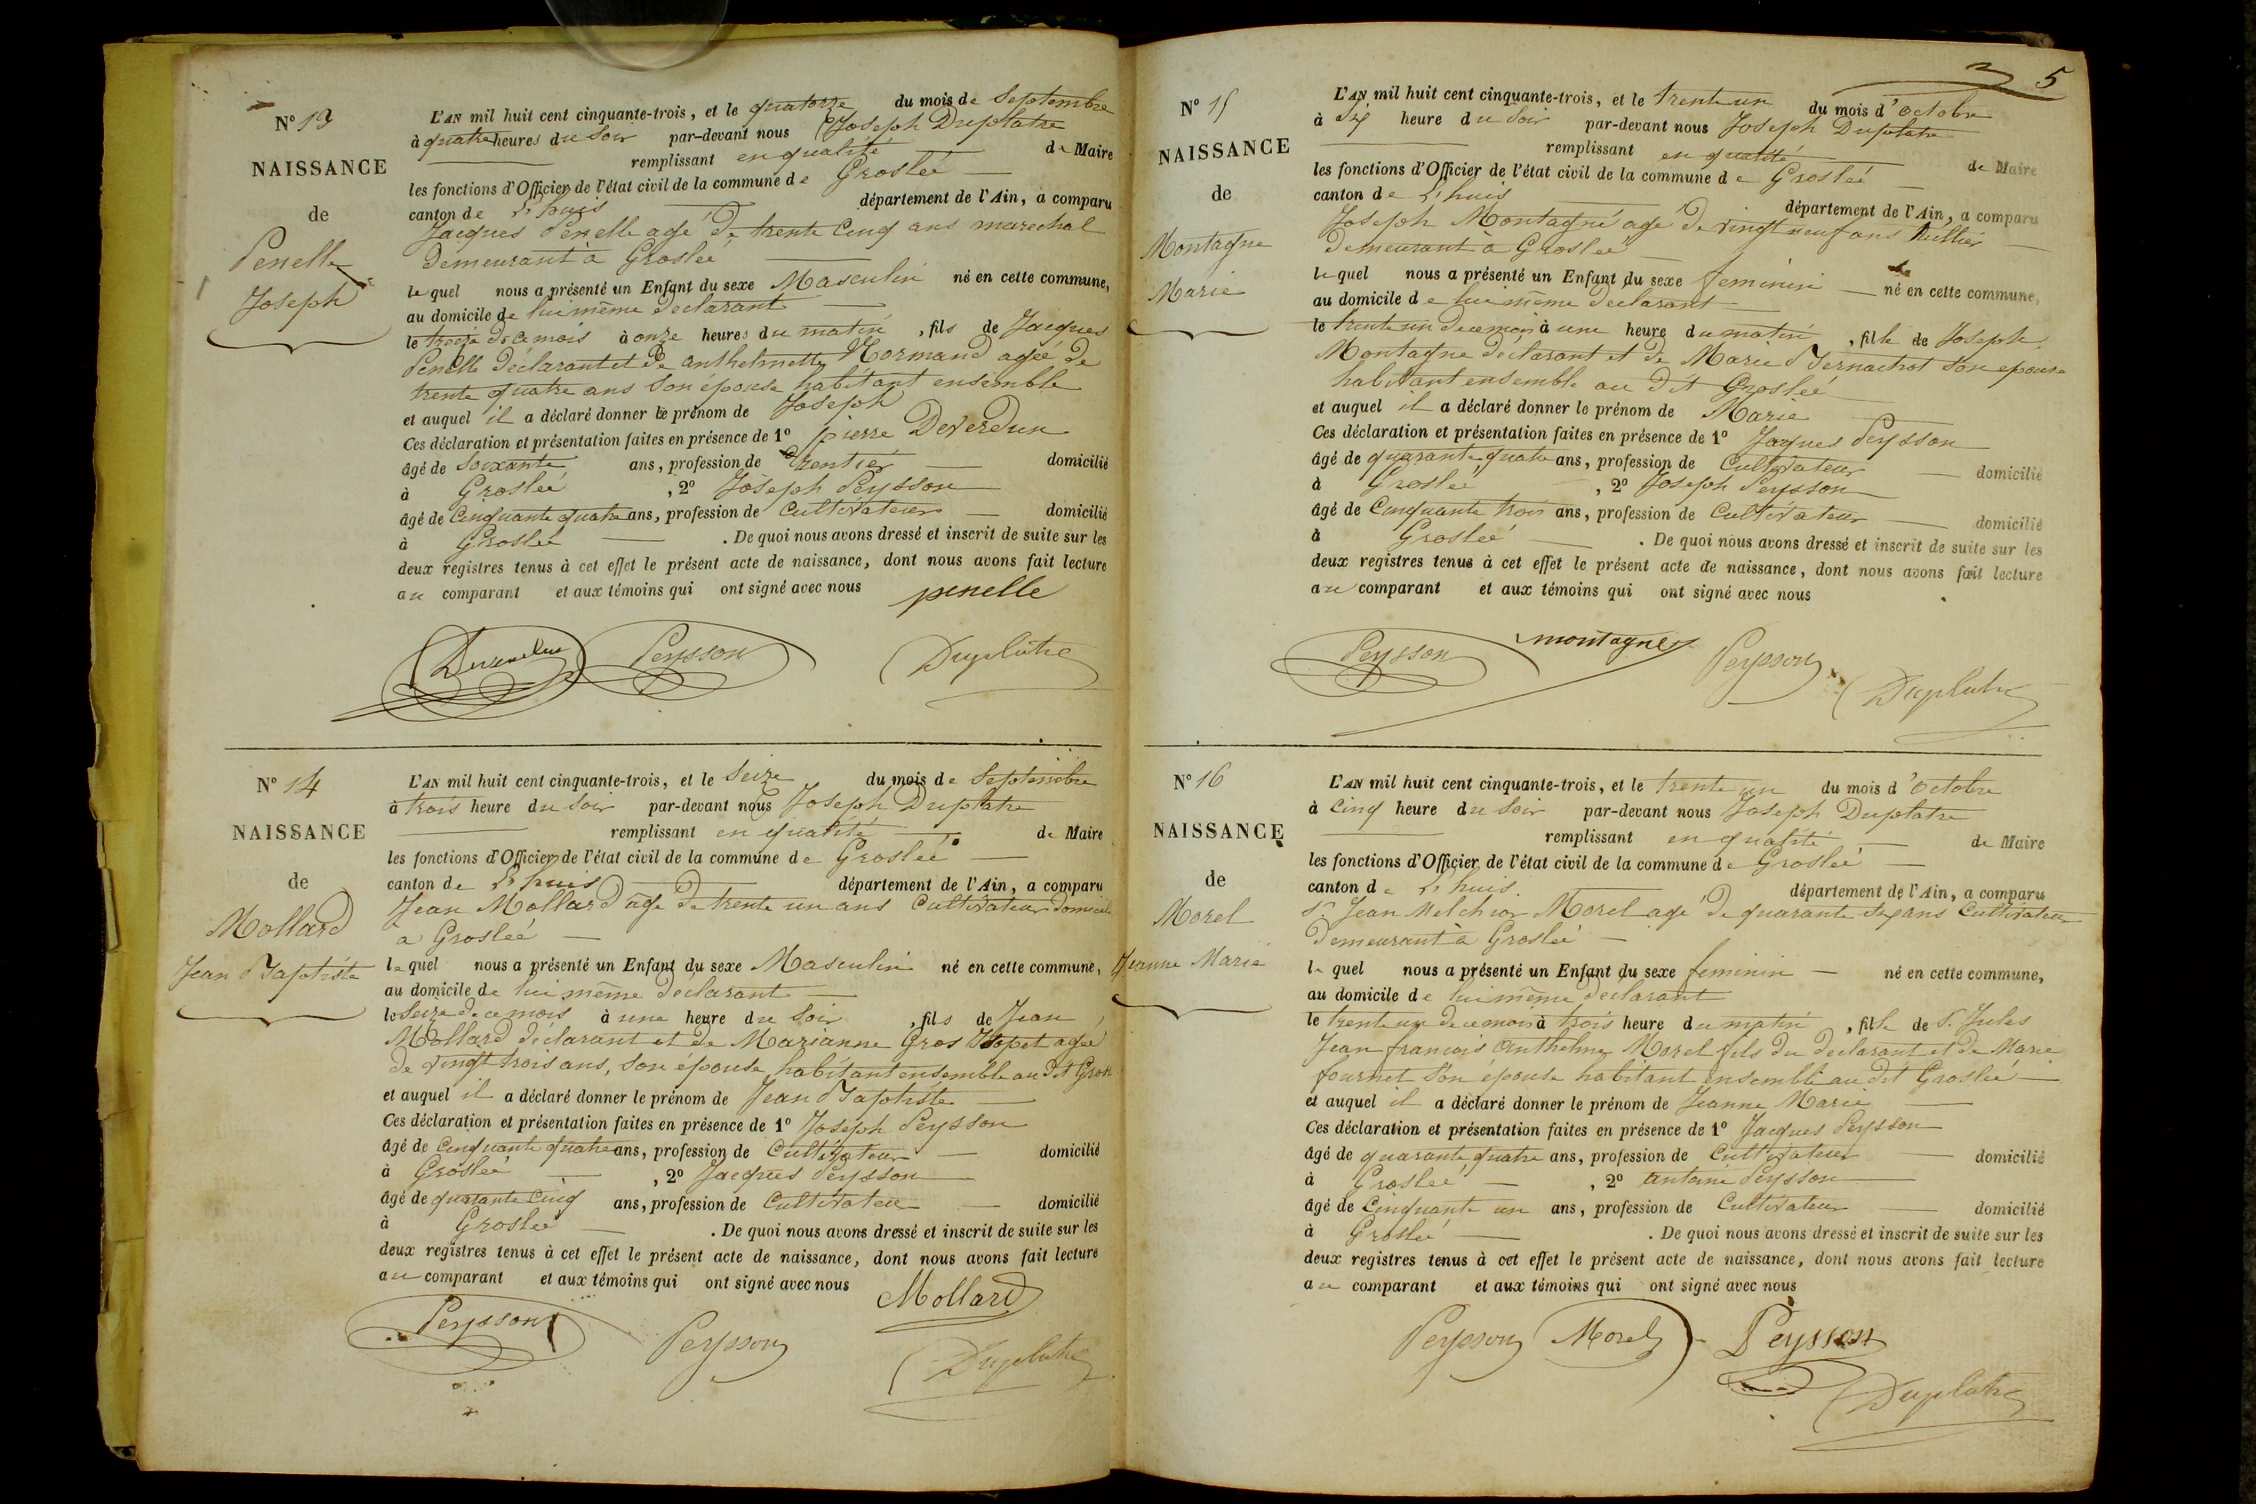 N° 13
NAISSANCE
de
Penelle
Joseph
L'AN mil huit cent cinquante-trois, et le quatorze du mois de Septembre
à quatre heures du Soir par-devant nous Joseph Duplatre
remplissant en qualité de Maire
les fonctions d'Officier de l'état civil de la commune de Groslée
canton de L'huis département de l'Ain, a comparu
Jacques Penelle agé de trente Cinq ans marechal
demeurant à Groslée
lequel nous a présenté un Enfant du sexe Masculin né en cette commune,
au domicile de lui même declarant
le treize de ce mois à onze heures du matin, fils de Jacques
Penelle déclarant et de anthelmette Normand agée de
trente quatre ans son épouse habitant ensemble
et auquel il a déclaré donner le prénom de Joseph
Ces déclaration et présentation faites en présence de 1° pierre Deverdun
âgé de Soixante ans, profession de rentier domicilié
à Groslée, 2° Joseph Peysson
âgé de Cinquante quatre ans, profession de Cultivateur domicilié
à Groslée. De quoi nous avons dressé et inscrit de suite sur les
deux registres tenus à cet effet le présent acte de naissance, dont nous avons fait lecture
au comparant et aux témoins qui ont signé avec nous penelle
Peysson Duplatre
N° 14
NAISSANCE
de
Mollard
Jean Baptiste
L'AN mil huit cent cinquante-trois, et le Seize du mois de Septembre
à trois heure du Soir par-devant nous Joseph Duplatre
remplissant en qualité de Maire
les fonctions d'Officier de l'état civil de la commune de Groslée
canton de L'huis département de l'Ain, a comparu
Jean Mollard age de trente un ans Cultivateur domicile
a Groslée
lequel nous a présenté un Enfant du sexe Masculin né en cette commune,
au domicile de lui même declarant
le Seize de ce mois à une heure du Soir, fils de Jean
Mollard déclarant et de Marianne Gros agée
de vingt trois ans, son épouse, habitant ensemble au dit Groslé
et auquel il a déclaré donner le prénom de Jean Baptiste
Ces déclaration et présentation faites en présence de 1° Joseph Peysson
âgé de Cinquante quatre ans, profession de Cultivateur domicilié
à Groslée, 2° Jacques Peysson
âgé de quarante Cinq ans, profession de Cultivateur domicilié
à Groslée. De quoi nous avons dressé et inscrit de suite sur les
deux registres tenus à cet effet le présent acte de naissance, dont nous avons fait lecture
au comparant et aux témoins qui ont signé avec nous Mollard
Peysson Peysson Duplatre
5
N° 15
NAISSANCE
de
Montagne
Marie
L'AN mil huit cent cinquante-trois, et le trente un du mois d'Octobre
à Six heure du Soir par-devant nous Joseph Duplatre
remplissant en qualité de Maire
les fonctions d'Officier de l'état civil de la commune de Groslée
canton de L'huis département de l'Ain, a comparu
Joseph Montagne agé de vingt neuf ans
demeurant à Groslée
lequel nous a présenté un Enfant du sexe feminin né en cette commune,
au domicile de lui même declarant
le trente un de ce mois à une heure du matin, fille de Joseph
Montagne déclarant et de Marie son epouse
habitant ensemble au dit Groslée
et auquel il a déclaré donner le prénom de Marie
Ces déclaration et présentation faites en présence de 1° Jacques Peysson
âgé de quarante quatre ans, profession de Cultivateur domicilié
à Groslée, 2° Joseph Peysson
âgé de Cinquante trois ans, profession de Cultivateur domicilié
à Groslée. De quoi nous avons dressé et inscrit de suite sur les
deux registres tenus à cet effet le présent acte de naissance, dont nous avons fait lecture
au comparant et aux témoins qui ont signé avec nous
Peysson montagne Peysson Duplatre
N° 16
NAISSANCE
de
Morel
Jeanne Marie
L'AN mil huit cent cinquante-trois, et le trente un du mois d'Octobre
à Cinq heure du Soir par-devant nous Joseph Duplatre
remplissant en qualité de Maire
les fonctions d'Officier de l'état civil de la commune de Groslée
canton de L'huis département de l'Ain, a comparu
Sr Jean Melchior Morel agé de quarante Six ans Cultivateur
demeurant à Groslée
lequel nous a présenté un Enfant du sexe feminin né en cette commune,
au domicile de lui même declarant
le trente un de ce mois à trois heure du matin, fille de Sr. Jules
Jean francois Anthelme Morel fils du declarant et de Marie
fournet son épouse habitant ensemble au dit Groslée
et auquel il a déclaré donner le prénom de Jeanne Marie
Ces déclaration et présentation faites en présence de 1° Jacques Peysson
âgé de quarante quatre ans, profession de Cultivateur domicilié
à Groslée, 2° antoine Peysson
âgé de Cinquante un ans, profession de Cultivateur domicilié
à Groslée. De quoi nous avons dressé et inscrit de suite sur les
deux registres tenus à cet effet le présent acte de naissance, dont nous avons fait lecture
au comparant et aux témoins qui ont signé avec nous
Peysson Morel Peysson
Duplatre